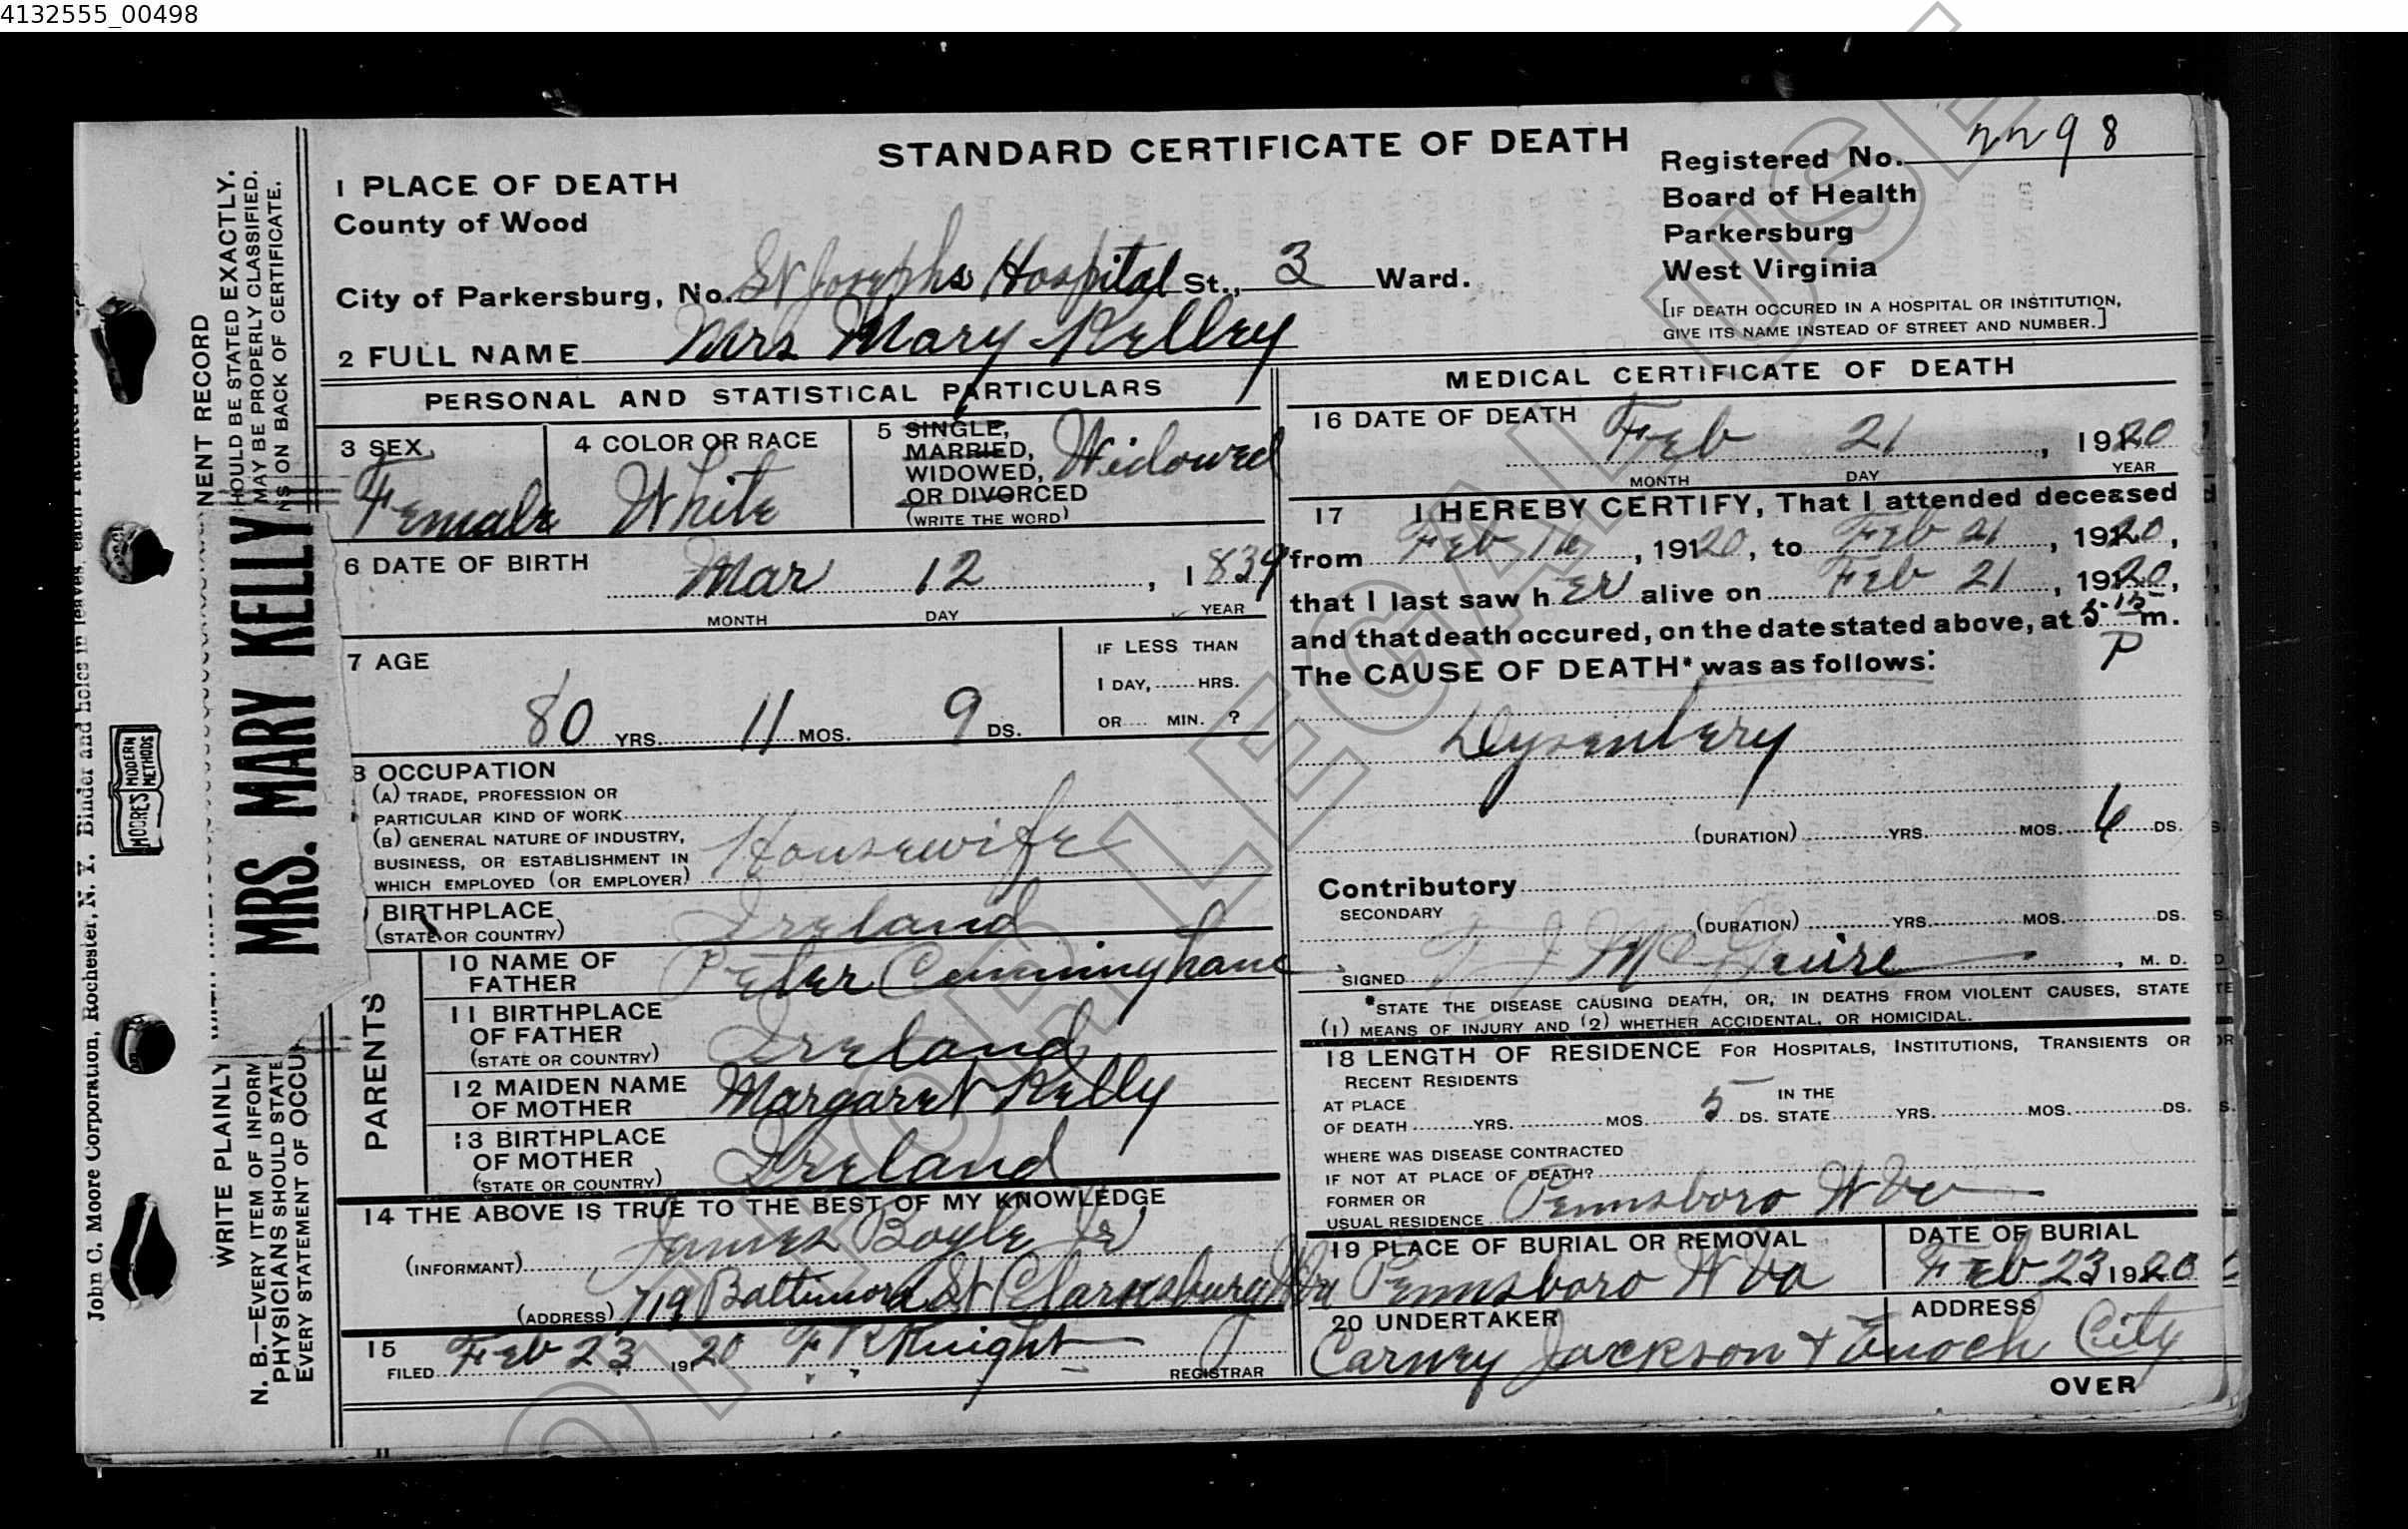 4132555_00498
STANDARD CERTIFICATE OF DEATH
Registered No. 2298
Board of Health
Parkersburg
West Virginia
[IF DEATH OCCURED IN A HOSPITAL OR INSTITUTION,
GIVE ITS NAME INSTEAD OF STREET AND NUMBER.]
1 PLACE OF DEATH
County of Wood
City of Parkersburg, No. St Josephs Hospital St., 3 Ward.
2 FULL NAME Mrs Mary Kelley
PERSONAL AND STATISTICAL PARTICULARS
3 SEX
Female
4 COLOR OR RACE
White
5 SINGLE,
MARRIED,
WIDOWED,
OR DIVORCED
(WRITE THE WORD)
Widowed
6 DATE OF BIRTH
Mar 12, 1839
MONTH DAY YEAR
7 AGE
80 YRS. 11 MOS. 9 DS.
IF LESS THAN
1 DAY, ...... HRS.
OR .... MIN. ?
8 OCCUPATION
(A) TRADE, PROFESSION OR
PARTICULAR KIND OF WORK
(B) GENERAL NATURE OF INDUSTRY,
BUSINESS, OR ESTABLISHMENT IN
WHICH EMPLOYED (OR EMPLOYER) Housewife
BIRTHPLACE
(STATE OR COUNTRY) Ireland
PARENTS
10 NAME OF
FATHER Peter Cunningham
11 BIRTHPLACE
OF FATHER
(STATE OR COUNTRY) Ireland
12 MAIDEN NAME
OF MOTHER Margaret Kelly
13 BIRTHPLACE
OF MOTHER
(STATE OR COUNTRY) Ireland
14 THE ABOVE IS TRUE TO THE BEST OF MY KNOWLEDGE
(INFORMANT) James Boyle Jr
(ADDRESS) 719 Baltimore St Clarksburg W Va
15
FILED Feb 23 1920 F R Knight REGISTRAR
MEDICAL CERTIFICATE OF DEATH
16 DATE OF DEATH
Feb 21, 1920
MONTH DAY YEAR
17 I HEREBY CERTIFY, That I attended deceased
from Feb 16, 19120, to Feb 21, 1920,
that I last saw her alive on Feb 21, 1920,
and that death occured, on the date stated above, at 5-15 m.
P
The CAUSE OF DEATH* was as follows:
Dysentery
(DURATION) YRS. MOS. 6 DS.
Contributory
SECONDARY
(DURATION) YRS. MOS. DS.
SIGNED T J McGuire, M. D.
*STATE THE DISEASE CAUSING DEATH, OR, IN DEATHS FROM VIOLENT CAUSES, STATE
(1) MEANS OF INJURY AND (2) WHETHER ACCIDENTAL, OR HOMICIDAL.
18 LENGTH OF RESIDENCE FOR HOSPITALS, INSTITUTIONS, TRANSIENTS OR
RECENT RESIDENTS
AT PLACE
OF DEATH YRS. MOS. 5 DS.
IN THE
STATE YRS. MOS. DS.
WHERE WAS DISEASE CONTRACTED
IF NOT AT PLACE OF DEATH?
FORMER OR
USUAL RESIDENCE Pennsboro W Va
19 PLACE OF BURIAL OR REMOVAL
Pennsboro W Va
DATE OF BURIAL
Feb 23 1920
20 UNDERTAKER
Carney Jackson & Enoch
ADDRESS
City
OVER
John C. Moore Corporation, Rochester, N. Y. Binder and holes in leaves, each Patented
MOORE'S MODERN METHODS
NENT RECORD
HOULD BE STATED EXACTLY.
MAY BE PROPERLY CLASSIFIED.
NS ON BACK OF CERTIFICATE.
MRS. MARY KELLY
WRITE PLAINLY
N. B.—EVERY ITEM OF INFORM
PHYSICIANS SHOULD STATE
EVERY STATEMENT OF OCCU
FOR LEGAL USE